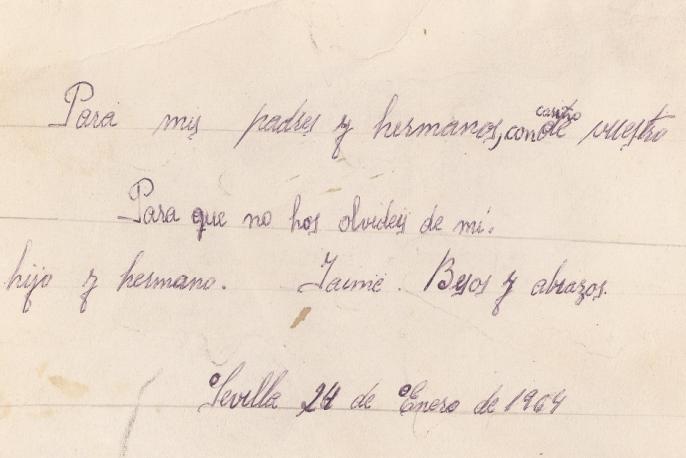 Para mis padres y hermanos, con cariño de vuestro
Para que no hos olvideis de mi.
hijo y hermano. Jaime. Besos y abrazos.
Sevilla 24 de Enero de 1964